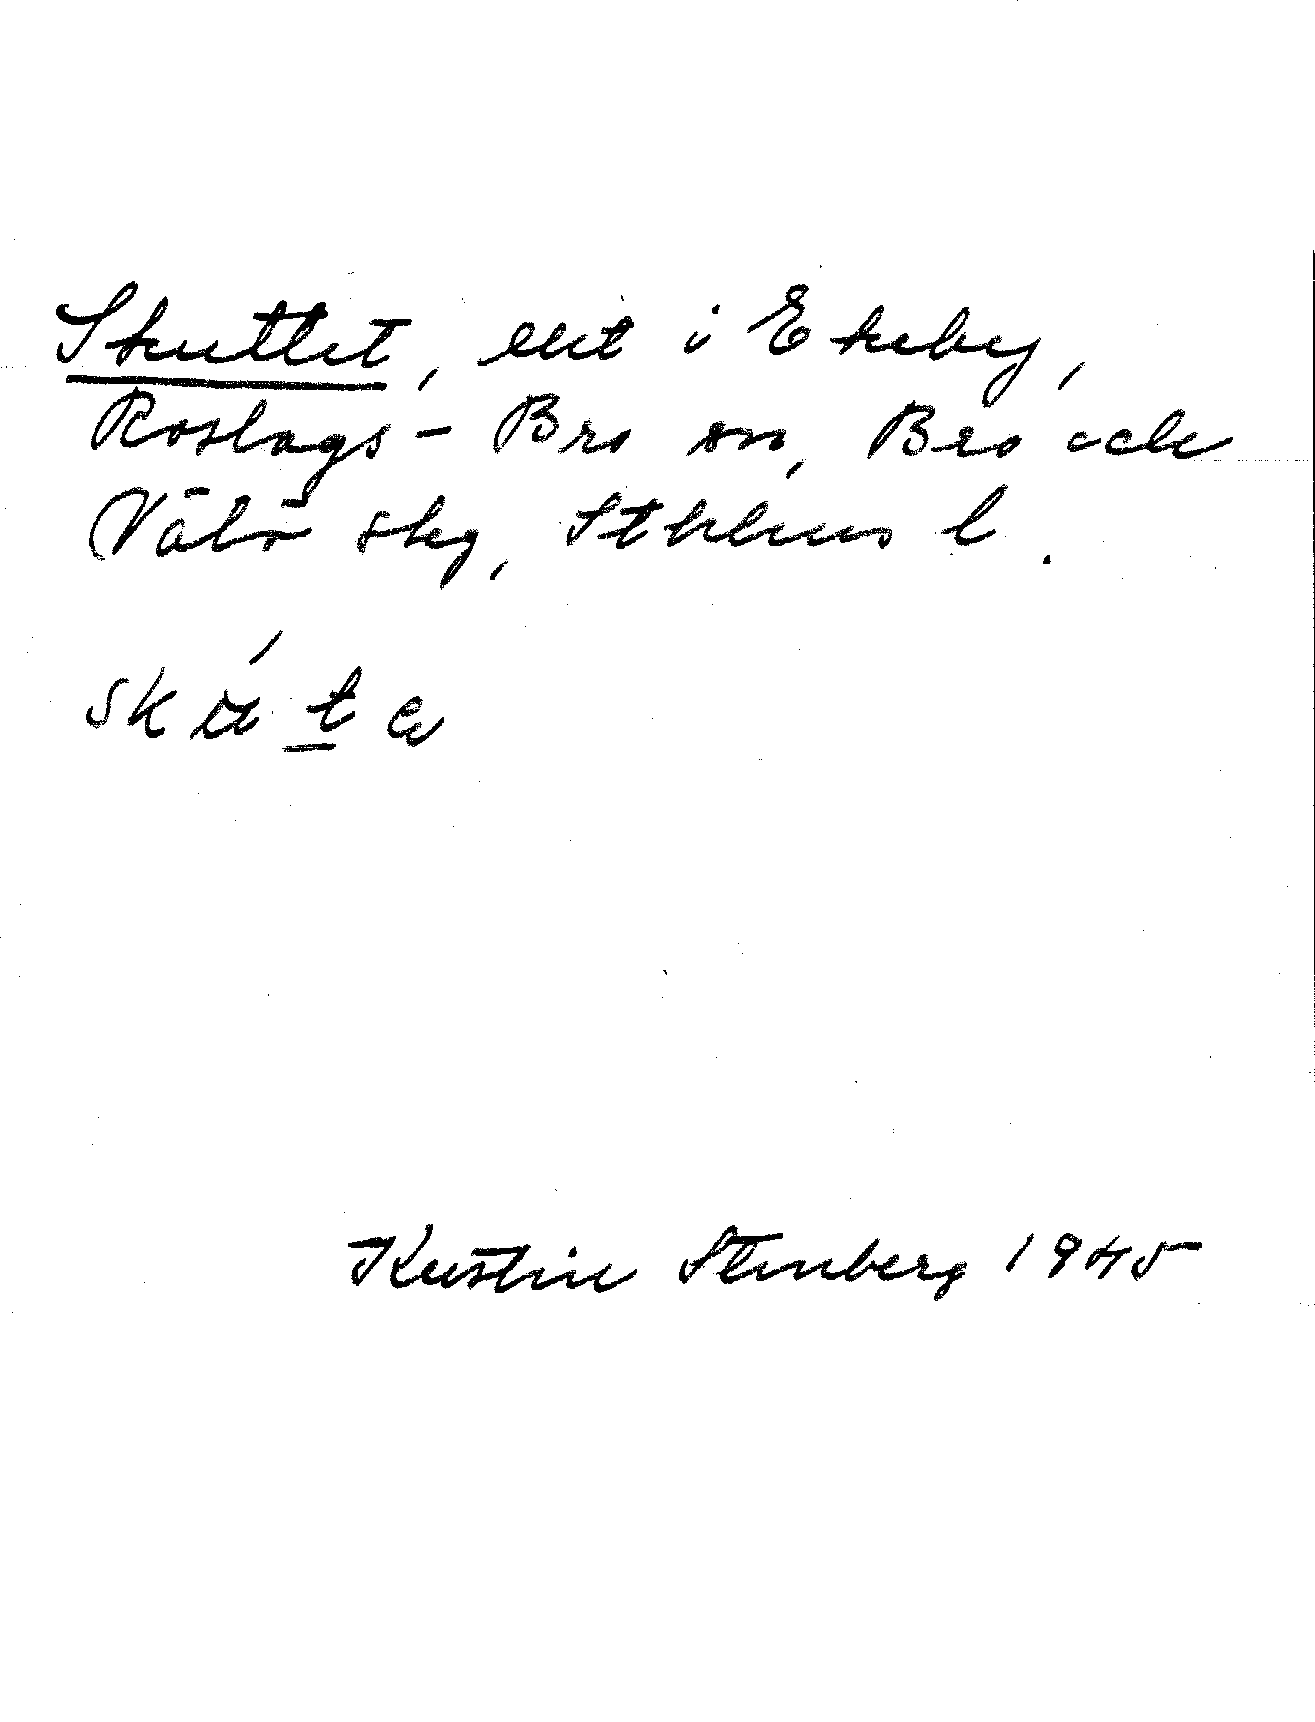 Skuttet, ert i Ekeby,
Roslags-Bro sn, Bro och
Vätö skg, Sthlms l.
Kerstin Stenberg 1945